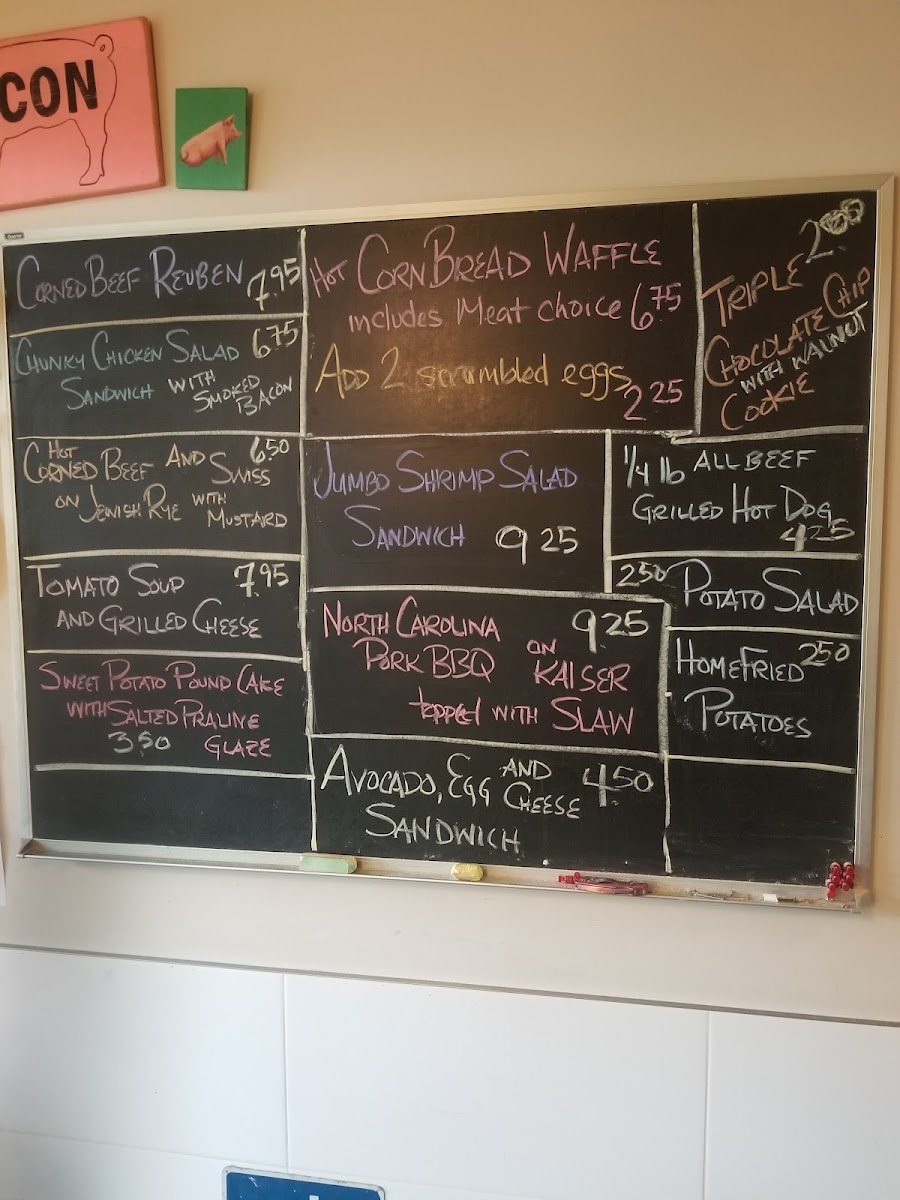 CON
CORNED BEEF REUBEN 7.95
CHUNKY CHICKEN SALAD 6.75
SANDWICH WITH SMOKED BACON
HOT 6.50
CORNED BEEF AND SWISS
ON JEWISH RYE WITH MUSTARD
TOMATO SOUP 7.95
AND GRILLED CHEESE
SWEET POTATO POUND CAKE
WITH SALTED PRALINE
3.50 GLAZE
HOT CORNBREAD WAFFLE
includes Meat choice 6.75
ADD 2 scrambled eggs
2.25
JUMBO SHRIMP SALAD
SANDWICH 9.25
NORTH CAROLINA 9.25
PORK BBQ ON KAISER
topped WITH SLAW
AVOCADO, EGG AND CHEESE 4.50
SANDWICH
TRIPLE
CHOCOLATE CHIP
WITH WALNUT
COOKIE
1/4 lb ALL BEEF
GRILLED HOT DOG
4.25
2.50 POTATO SALAD
HOMEFRIED 2.50
POTATOES